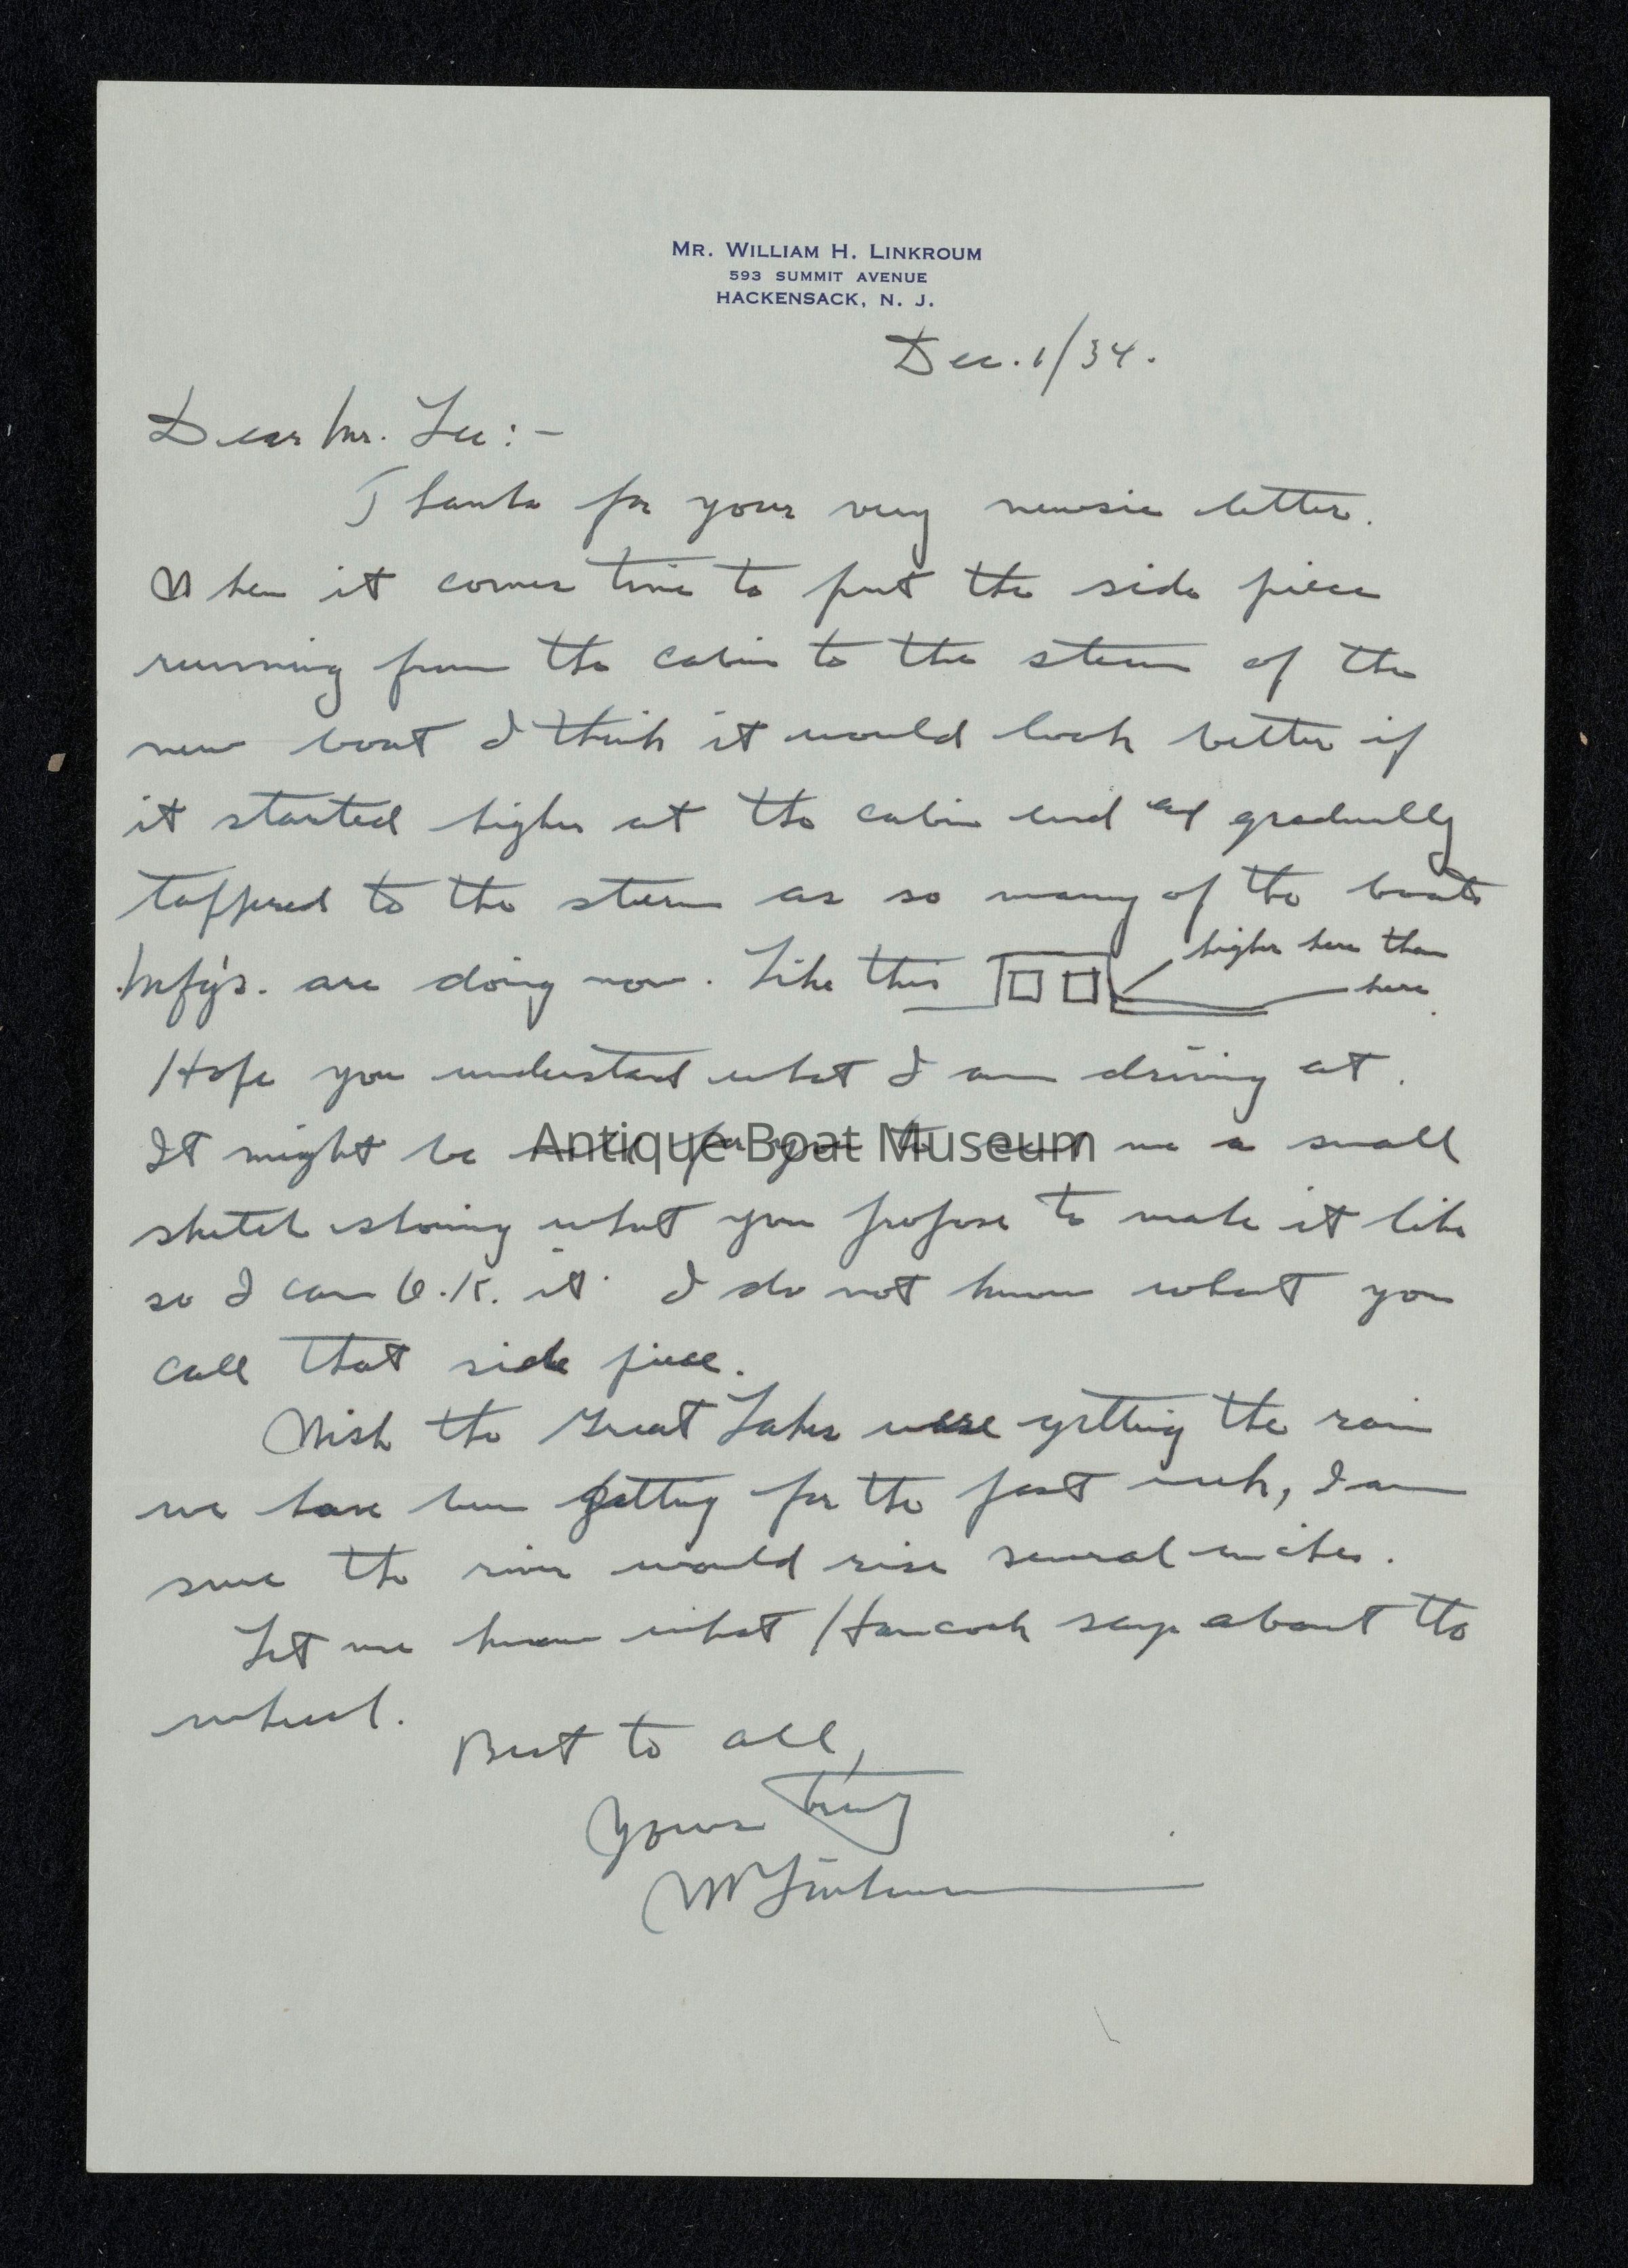 MR. WILLIAM H. LINKROUM
593 SUMMIT AVENUE
HACKENSACK, N. J.
Dec. 1/34.
Dear Mr. Lee:-
Thanks for your very newsie letter.
When it comes time to put the side piece
running from the cabin to the stern of the
new boat I think it would look better if
it started higher at the cabin end and gradually
tappered to the stern as so many of the boats
Mfg's. are doing now. Like this higher here than
here.
Hope you understand what I am driving at.
It might be well for you to send me a small
sketch showing what you propose to make it like
so I can O.K. it. I do not know what you
call that side piece.
Wish the Great Lakes were getting the rain
we have been getting for the past week, I am
sure the river would rise several inches.
Let me know what Hancock says about the
wheel.
Best to all,
Yours Truly
W Linkroum
Antique Boat Museum